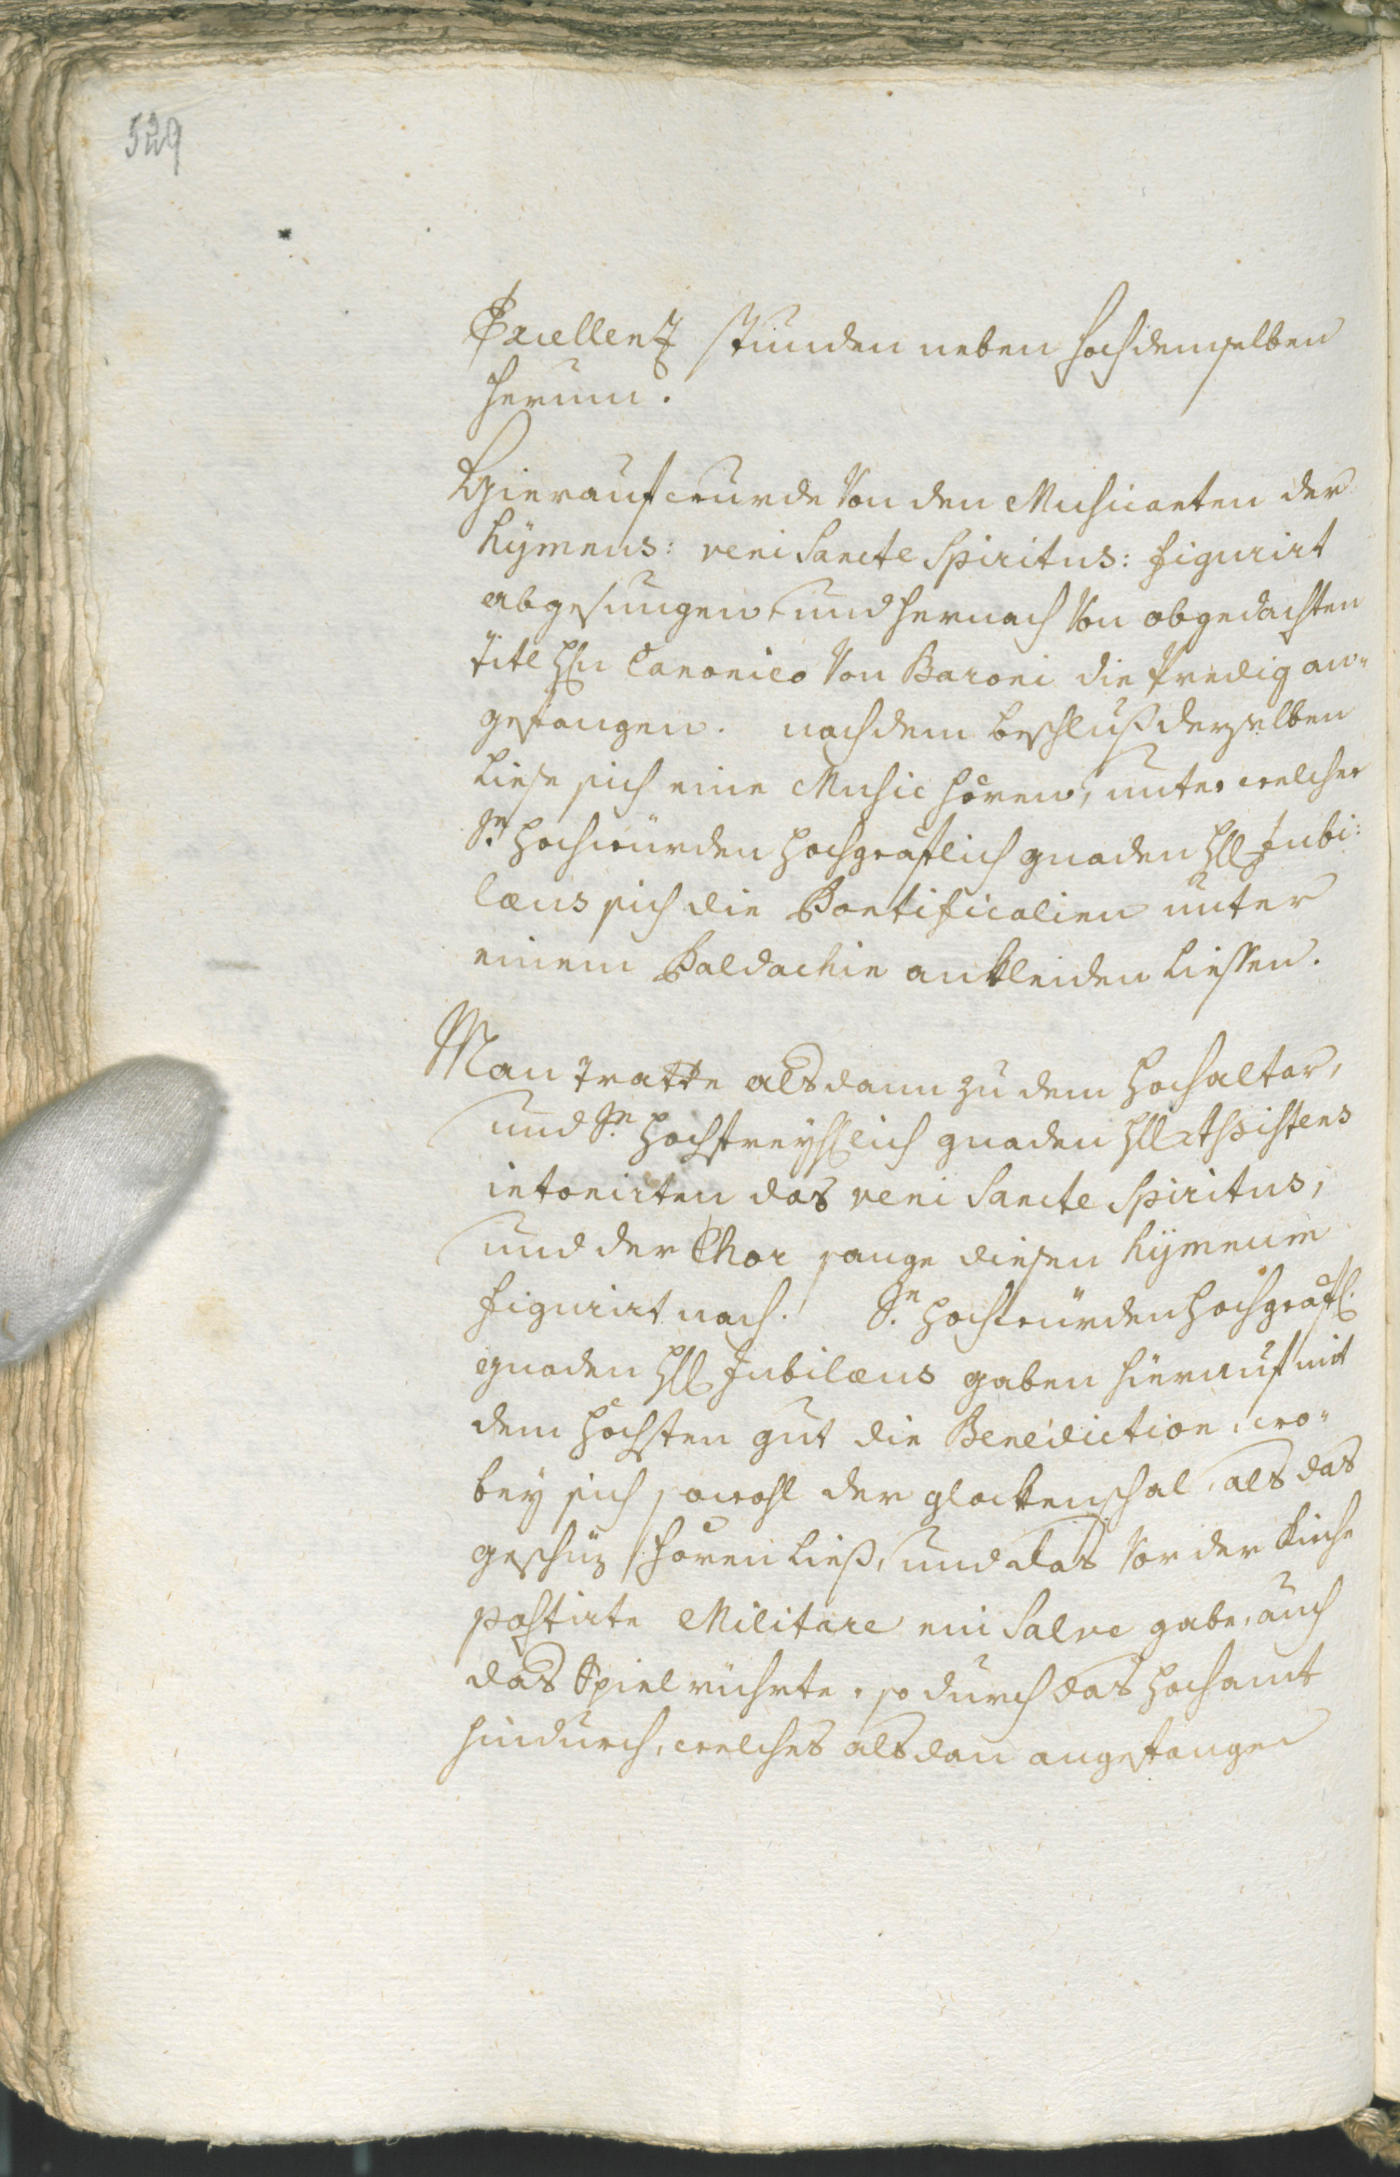 529
Excellenz stunden neben hochdemselben
herum.
Hierauf wurde von den Musicanten der
hÿmnus: veni Sancte Spiritus: figurirt
abgesungen und hernach von obgedachten
titl H[er]n Canonico von Baroni die Predig an-
gefangen. nach dem beschluß derselben
liese sich eine Music hören, unter welcher
Sr. hochwürden hochgräflich gnaden Hll Jubi:
læus sich die Pontificalien unter
einem Baldachin ankleiden liessen.
Man tratte alsdann zu dem hochaltar,
und Sr. hochfreyhl[ich] gnaden Hll Assistens
intonirten das veni Sancte Spiritus,
und der Chor sange diesen hÿmnum
figurirt nach. Sr. hochwürden hochgräfl.
gnaden Hll Jubilæus gaben hierauf mit
dem höchsten gut die Benediction, wo-
bey sich sowohl der glockenschal, als das
geschüz hören ließ, und das vor der Kirche
postirte Militare ein Salve gabe, auch
das Spiel rührte, so durch das hochamt
hindurch, welches alsdan angefangen